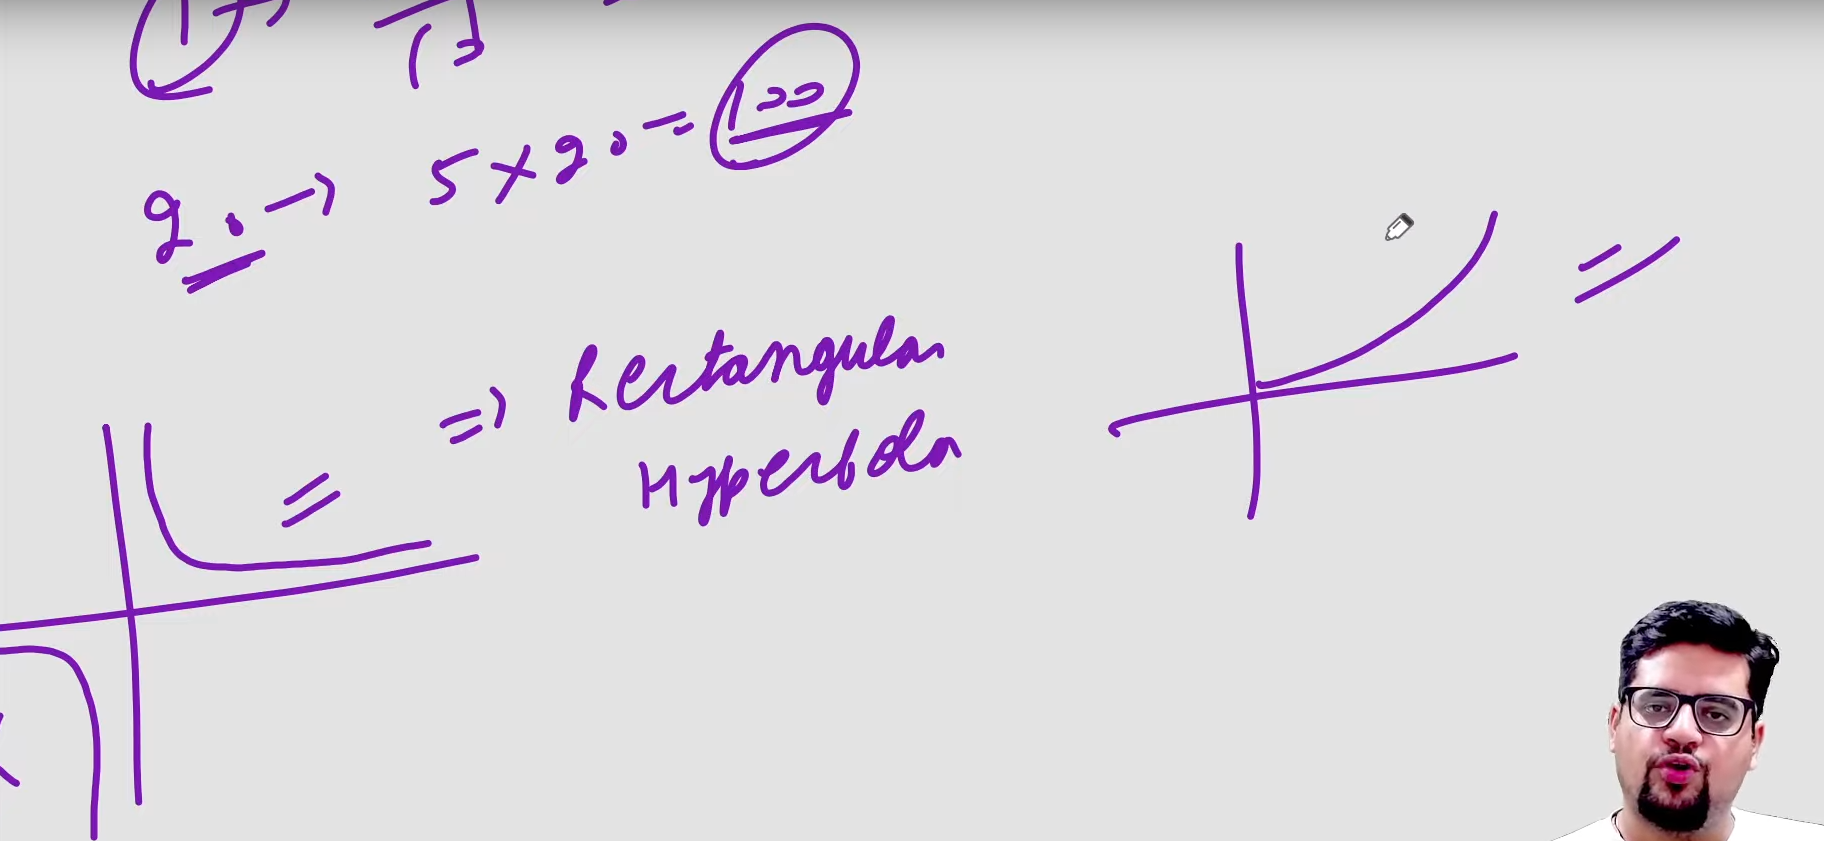 20 → 5 × 20 = 100
⇒ Rectangular
Hyperbola